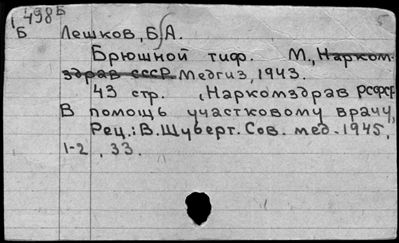 498Б
Б Лешков, Б. А.
Брюшной тиф. М., Нарком-
здрав СССР. Медгиз, 1943.
43 стр. (Наркомздрав РСФСР
В помощь участковому врачу,
Рец.: В. Шуберт. Сов. мед. 1945,
1-2, 33.